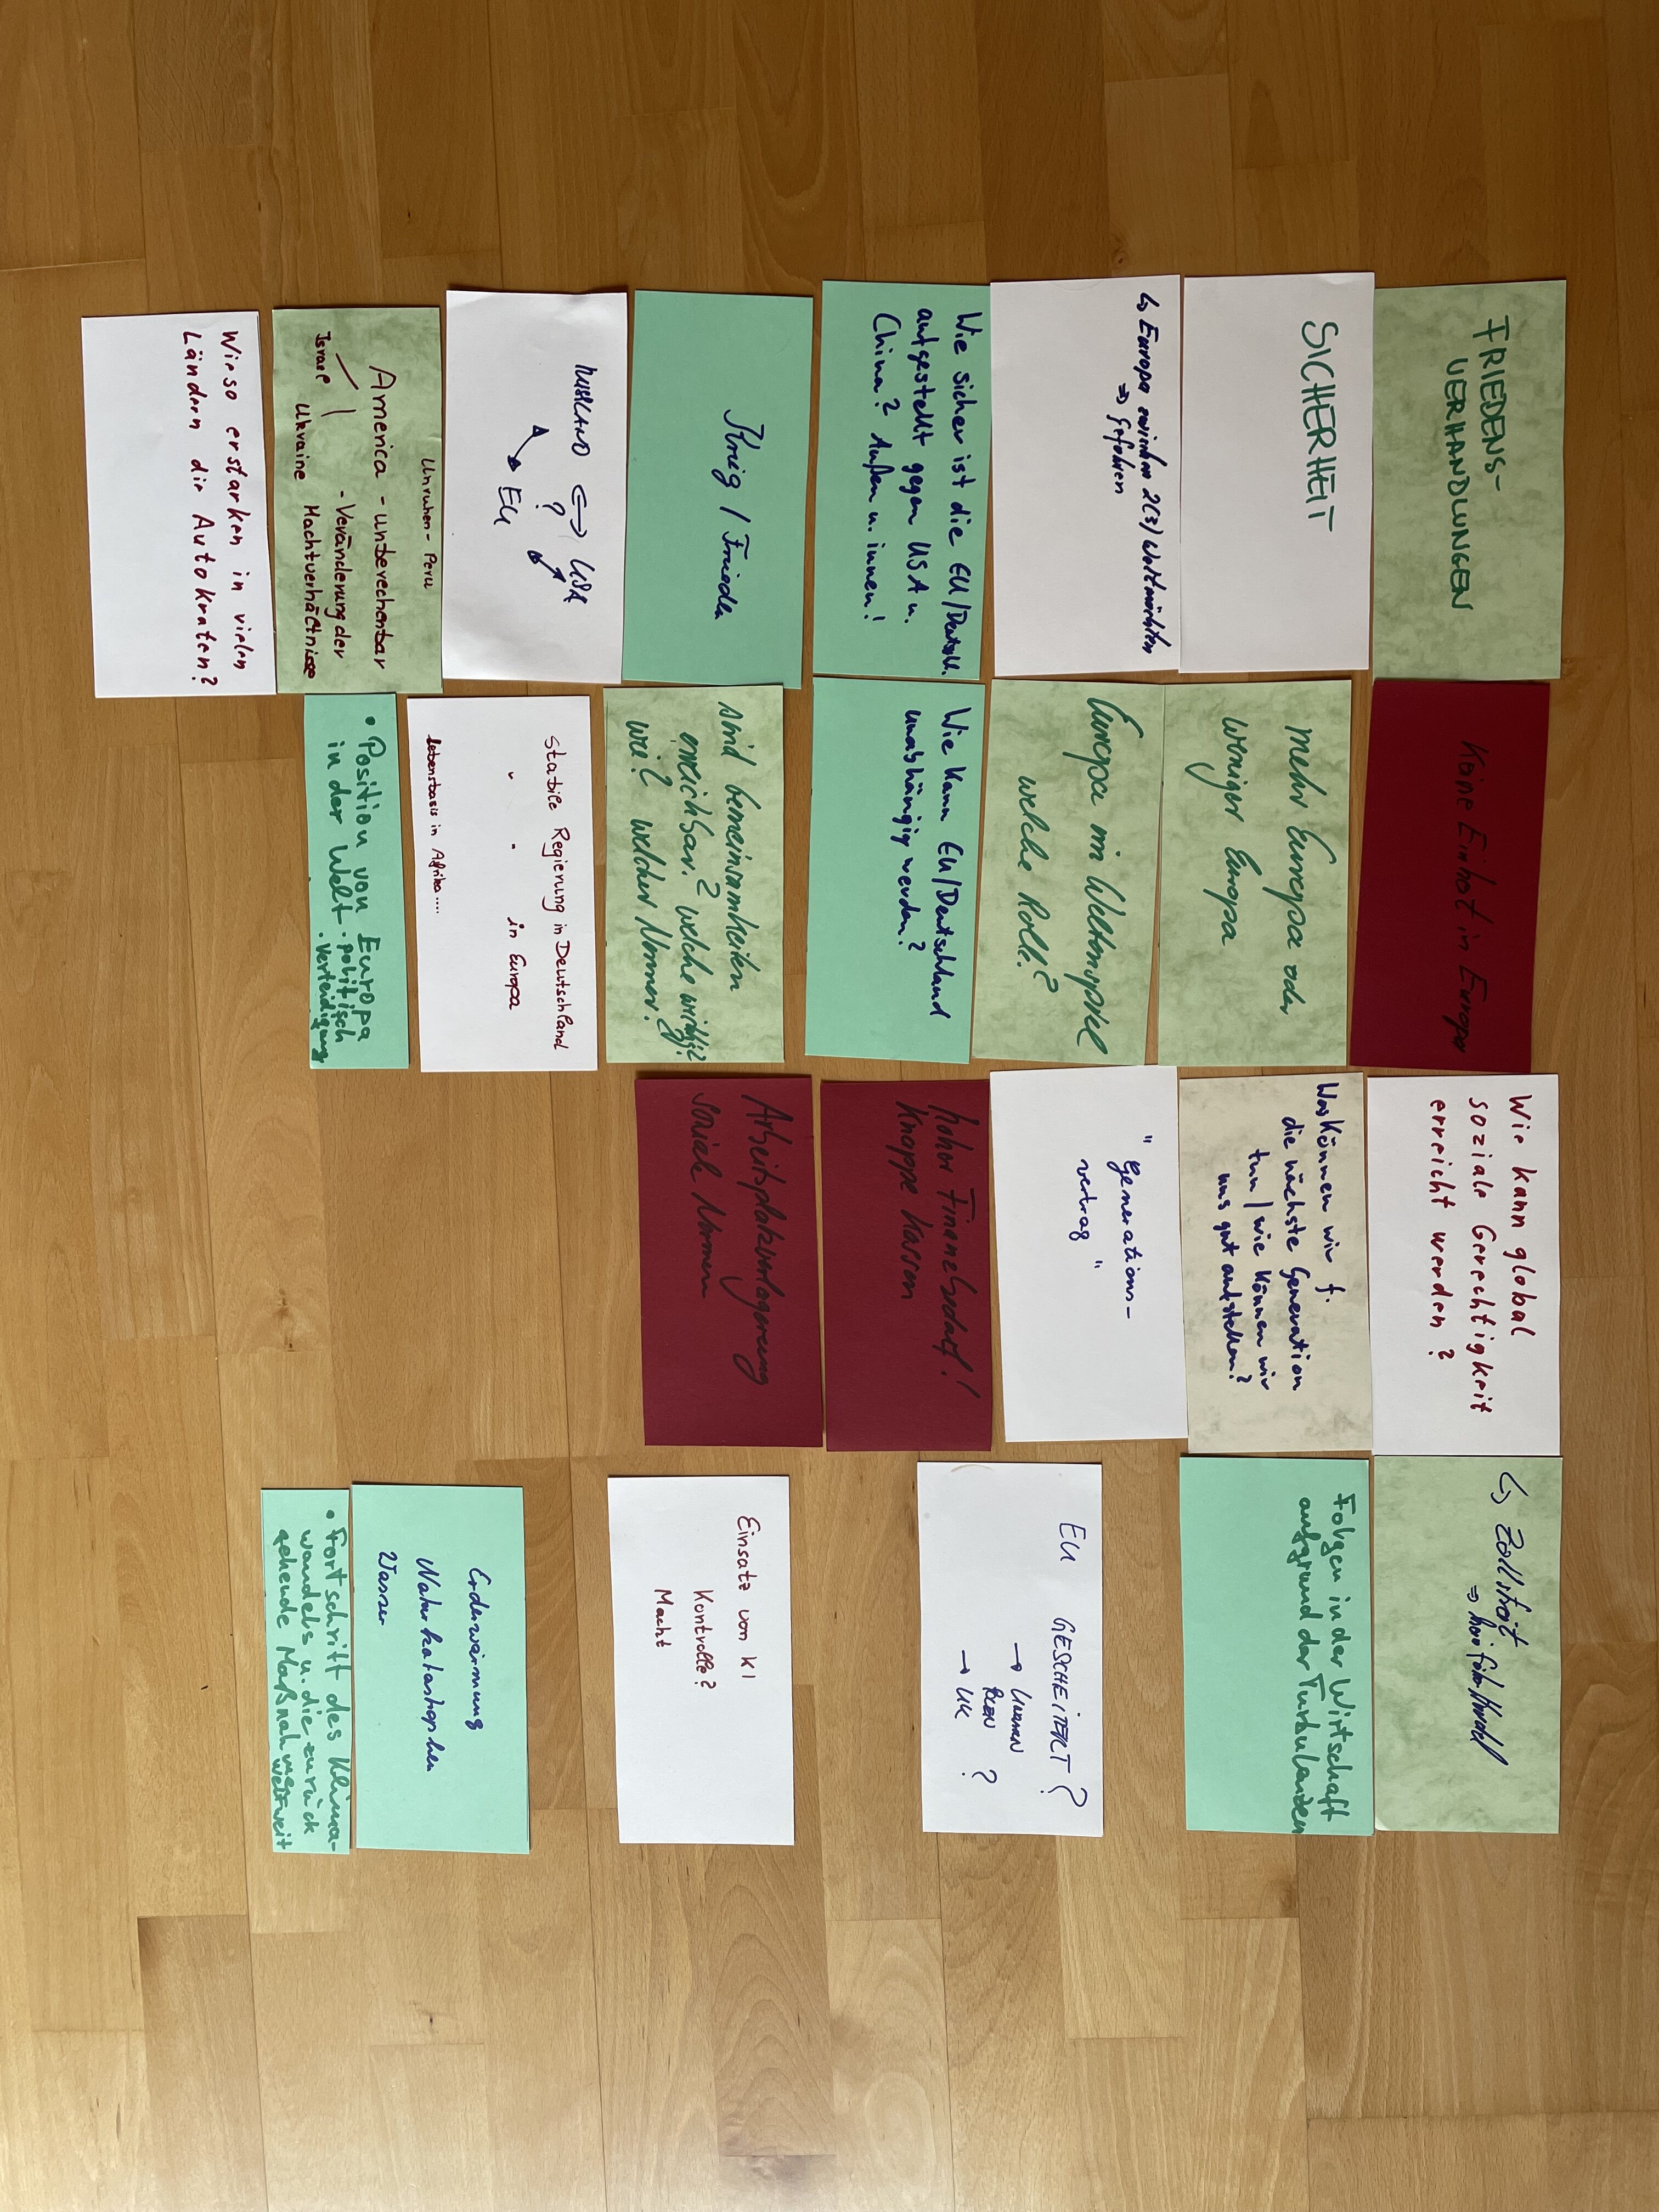 FRIEDENS-
VERHANDLUNGEN
SICHERHEIT
↳ Europa zwischen 2(3) Weltmächten
⇒ Gefahren
Wie sicher ist die EU/Deutschl.
aufgestellt gegen USA u.
China? Außen u. innen!
Krieg / Frieden
RUSSLAND ⟺ USA
?
EU
Unruhen - Peru
America - unberechenbar
- Veränderung der
Israel Ukraine Machtverhältnisse
Wieso erstarken in vielen
Ländern die Autokraten?
Keine Einheit in Europa
mehr Europa oder
weniger Europa
Europa im Weltkomplex
welche Rolle?
Wie kann EU/Deutschland
unabhängig werden?
sind Gemeinsamkeiten
erreichbar? welche wichtig?
wie? welcher Nenner?
Stabile Regierung in Deutschland
" - in Europa
Lebensbasis in Afrika ....
• Position von Europa
in der Welt - politisch
- Verteidigung
Wie kann global
soziale Gerechtigkeit
erreicht werden?
Was können wir f.
die nächste Generation
tun / wie können wir
uns gut aufstellen?
"Generations-
vertrag"
hoher Finanzbedarf!
Knappe Kassen
Arbeitsplatzverlagerung
soziale Normen
↳ Zollstreit
⇒
Folgen in der Wirtschaft
aufgrund der Turbulenzen
EU GESCHEITERT?
→ UNGARN
POLEN ?
→ UK
Einsatz von KI
Kontrolle?
Macht
Erderwärmung
Naturkatastrophen
Wasser
• Fortschritt des Klima-
wandels u. die zurück
gehende Maßnahmen
weltweit